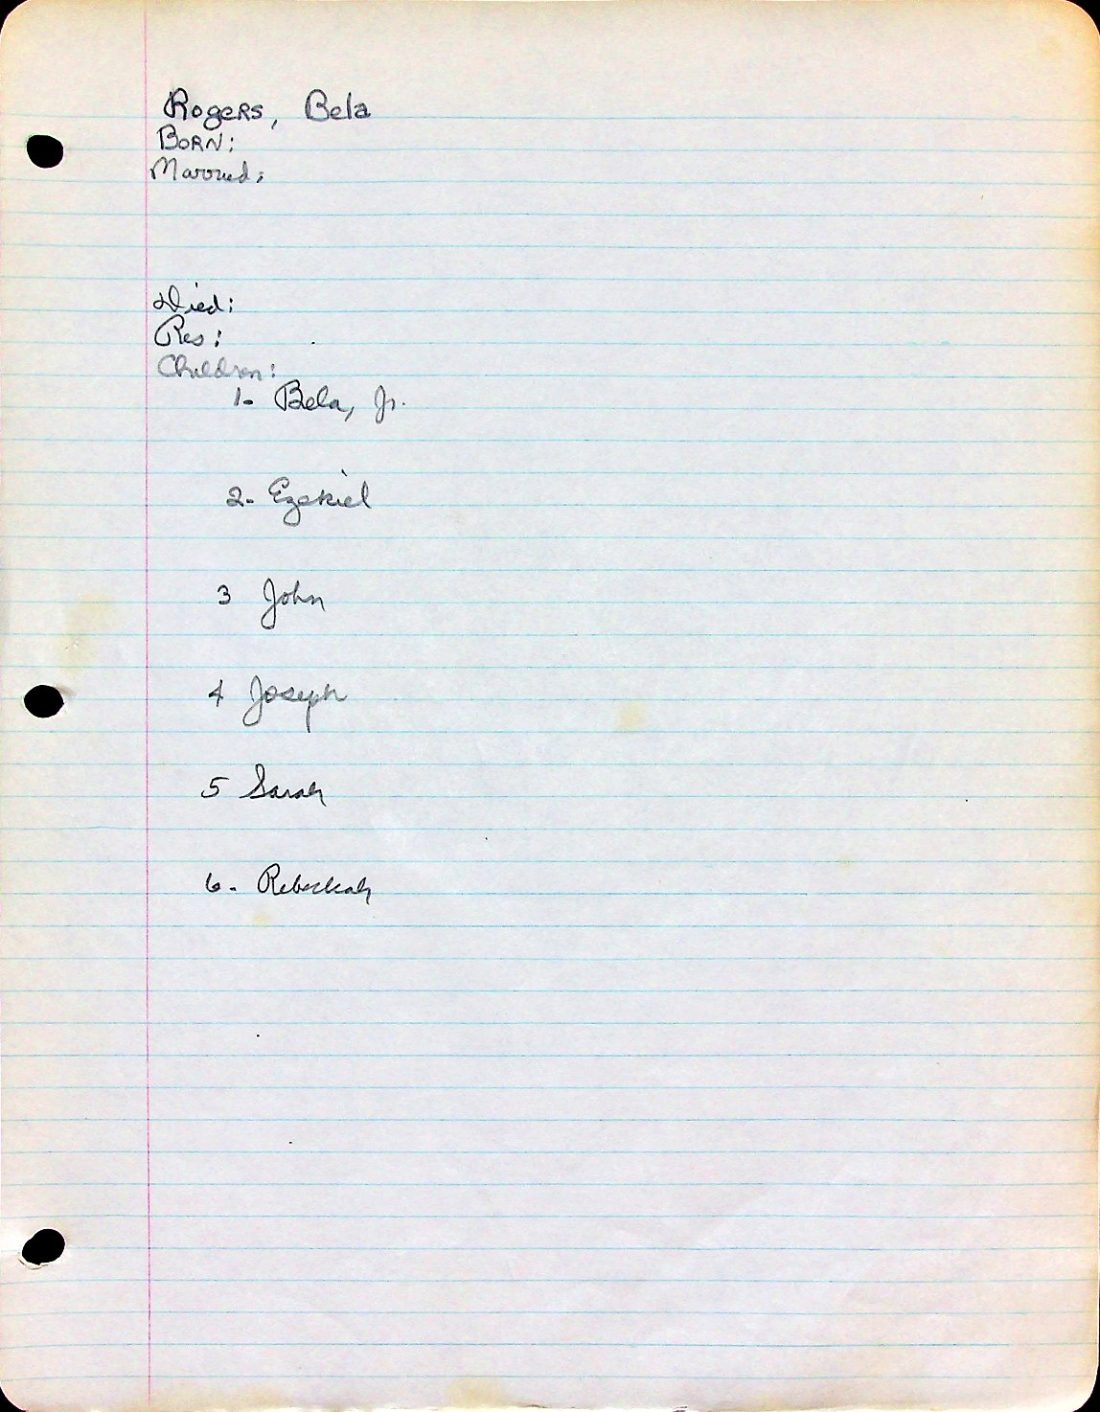 Rogers, Bela
Born:
Married:
Died:
Res:
Children:
1- Bela, Jr.
2- Ezekiel
3 John
4 Joseph
5 Sarah
6- Rebeckah